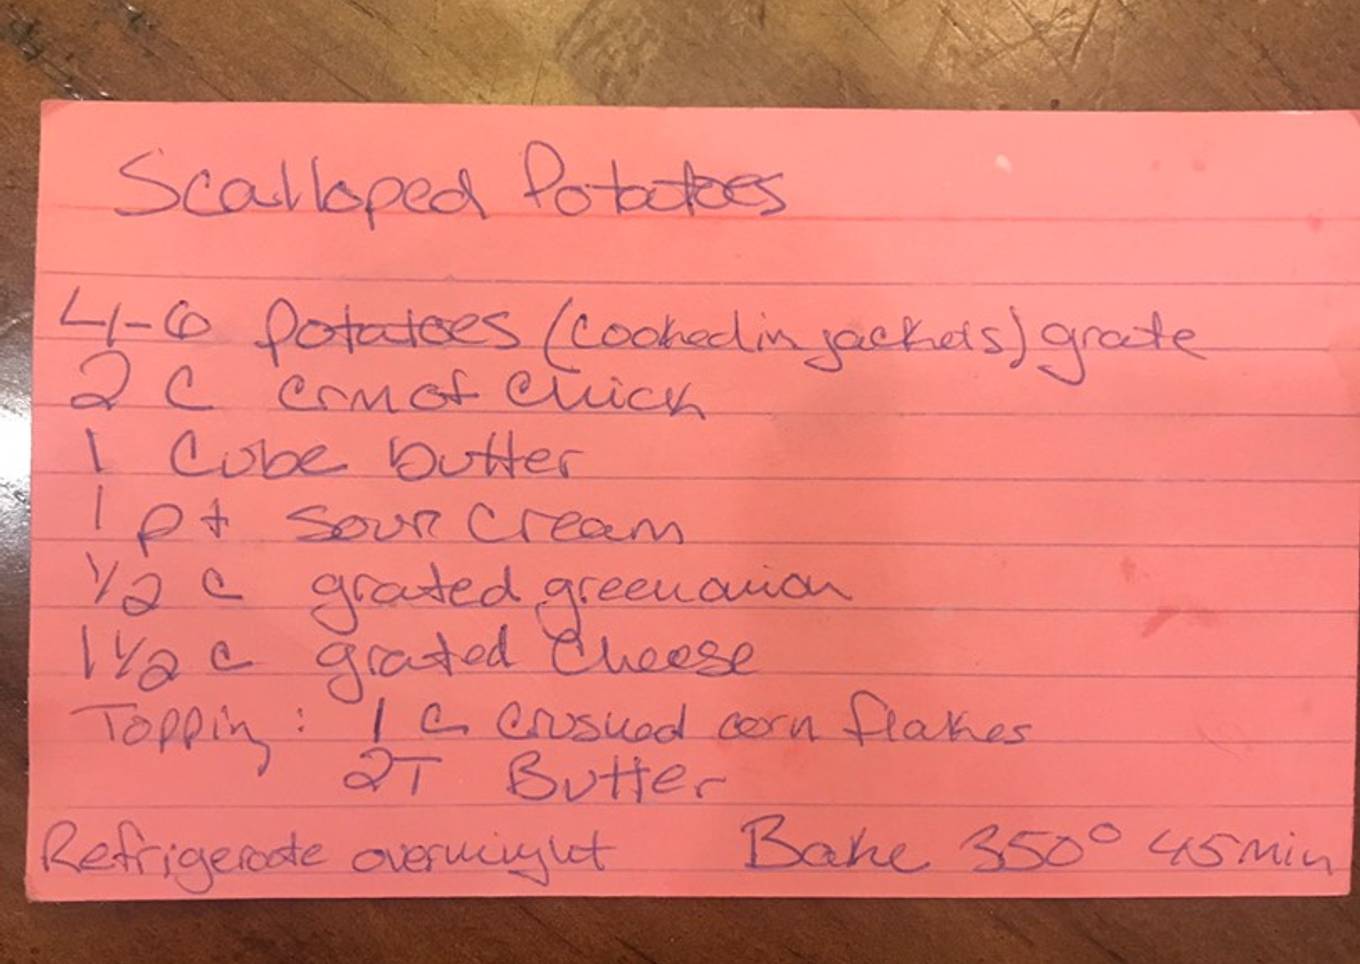 Scalloped Potatoes
4-6 potatoes (cooked in jackets) grate
2 C crm of chick
1 Cube butter
1 pt sour cream
1/2 c grated green onion
1 1/2 c grated cheese
Topping: 1 c crushed corn flakes
2T Butter
Refrigerate overnight Bake 350° 45 min